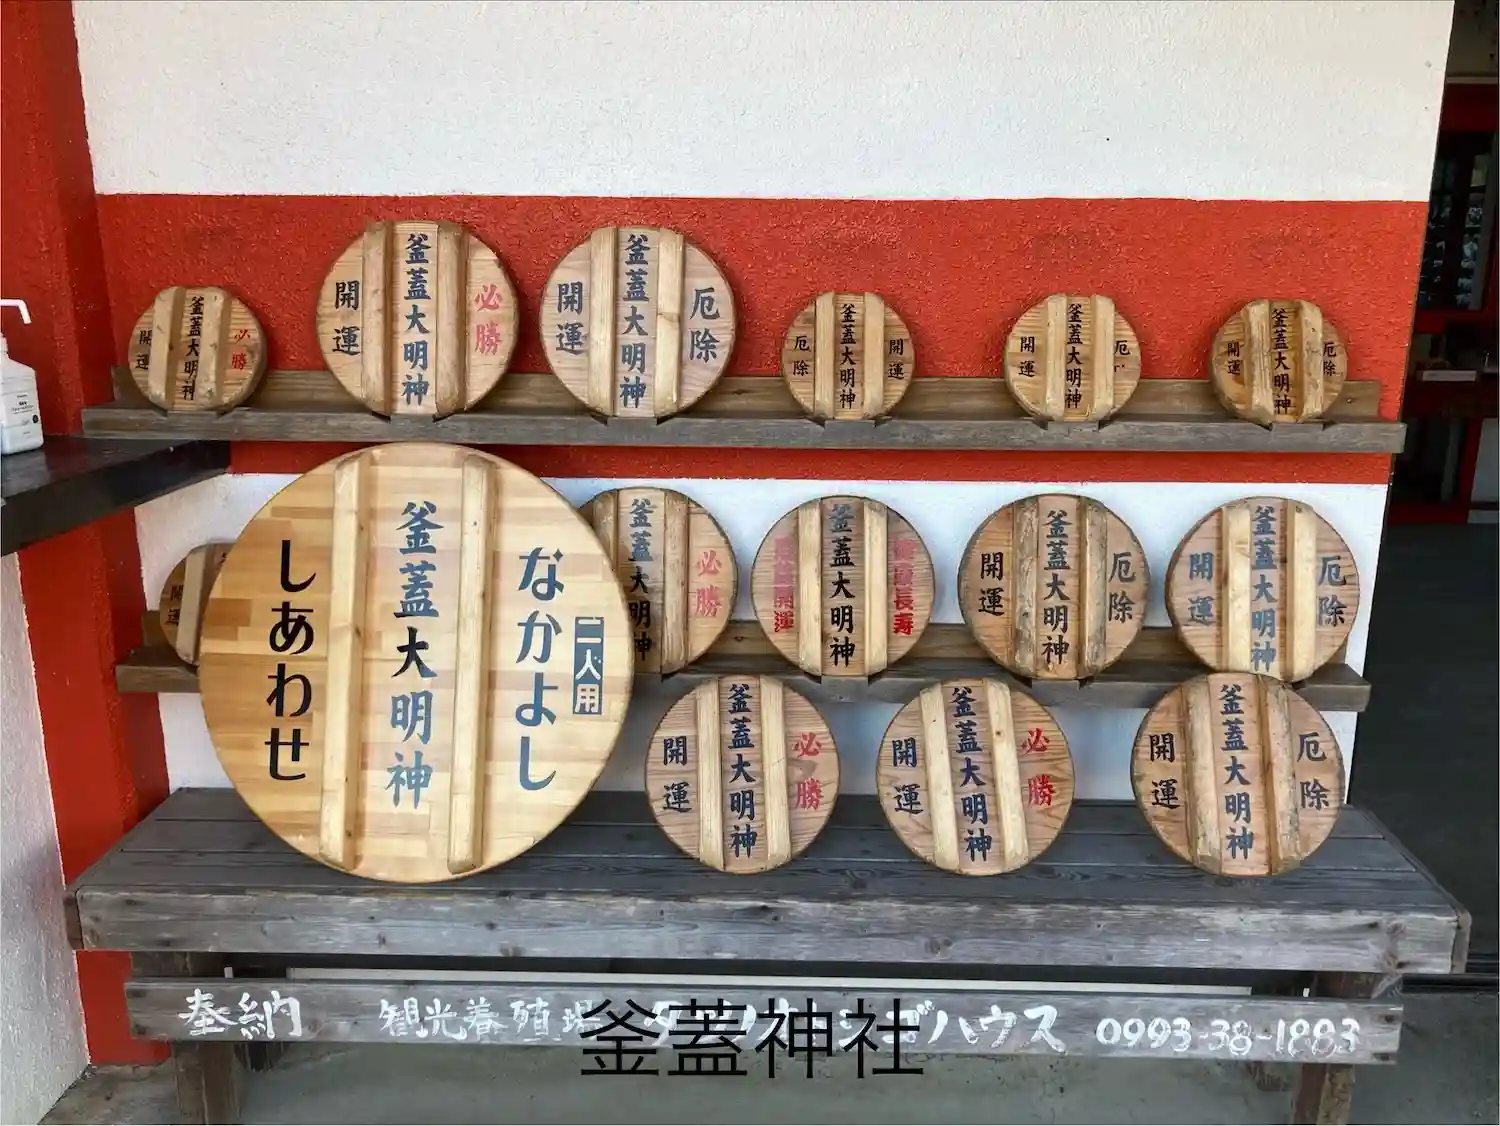 開運
釜蓋大明神
必勝
開運
釜蓋大明神
必勝
開運
釜蓋大明神
厄除
厄除
釜蓋大明神
開運
開運
釜蓋大明神
厄除
開運
釜蓋大明神
厄除
開運
しあわせ
釜蓋大明神
なかよし
二人用
釜蓋大明神
必勝
開運
釜蓋大明神
長寿
開運
釜蓋大明神
厄除
開運
釜蓋大明神
厄除
開運
釜蓋大明神
必勝
開運
釜蓋大明神
必勝
開運
釜蓋大明神
厄除
奉納 観光養殖場 ハウス 0993-38-1883
釜蓋神社